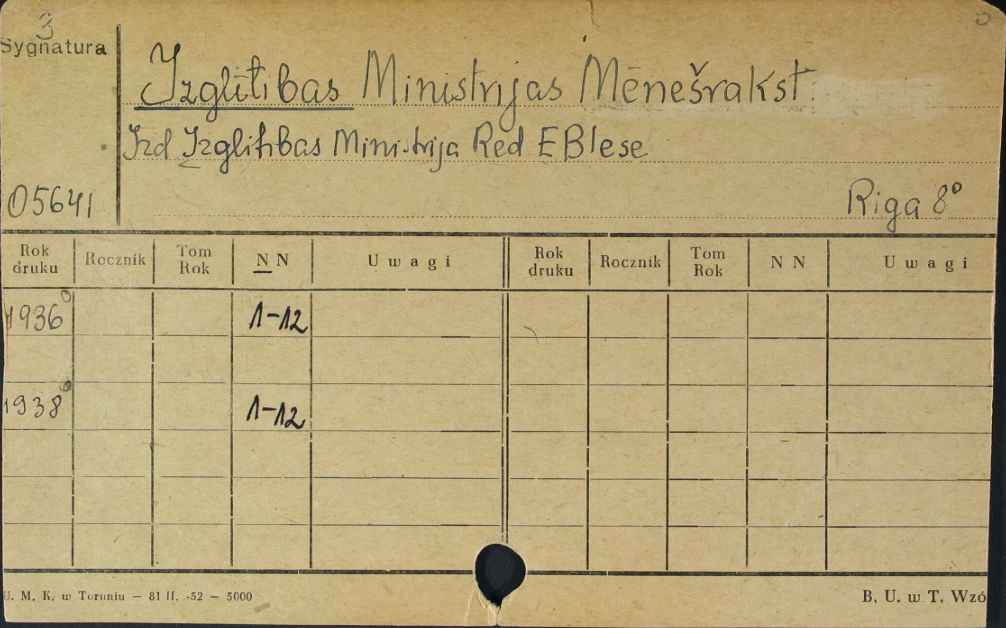 3
Sygnatura
Izglītības Ministrijas Mēnešrakst
Izd Izglitibas Ministrija Red E Blese
05641
Riga 8°
Rok druku Rocznik Tom Rok N N Uwagi Rok druku Rocznik Tom Rok N N Uwagi
1936 1-12
1938 1-12
U. M. K. w Toruniu — 81 II. -52 — 5000
B. U. w T. Wzó